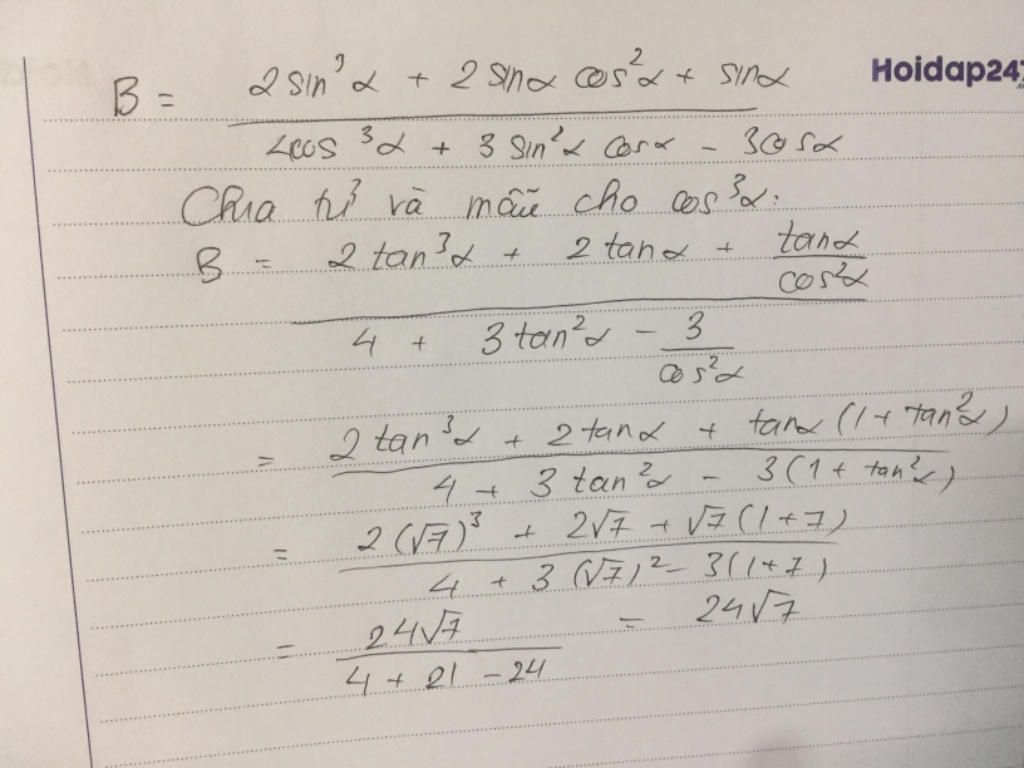 B = (2 sin³α + 2 sinα cos²α + sinα) / (4cos³α + 3 sin²α cosα - 3cosα)
Hoidap247
Chia tử và mẫu cho cos³α:
B = (2 tan³α + 2 tanα + tanα/cos²α) / (4 + 3 tan²α - 3/cos²α)
= (2 tan³α + 2 tanα + tanα (1 + tan²α)) / (4 + 3 tan²α - 3(1 + tan²α))
= (2(√7)³ + 2√7 + √7(1+7)) / (4 + 3(√7)² - 3(1+7))
= 24√7 / (4 + 21 - 24) = 24√7